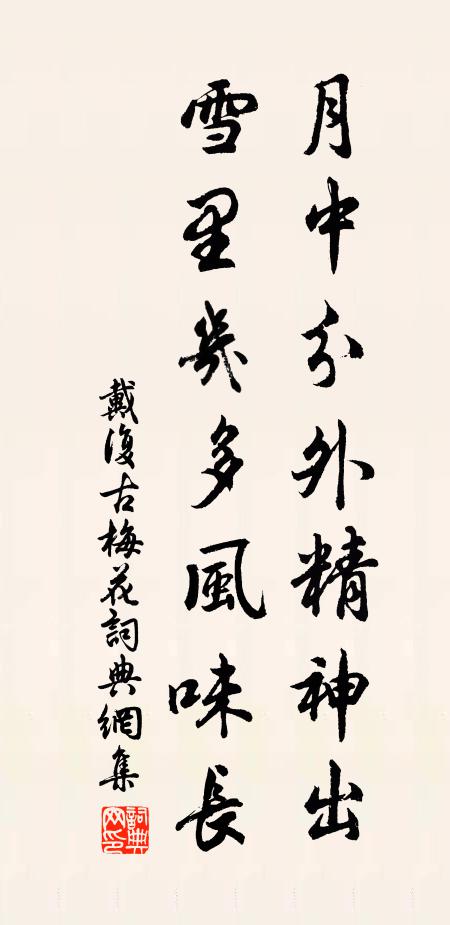 月中分外精神出
雪里幾多風味長
戴復古梅花詞典網集
詞典網印